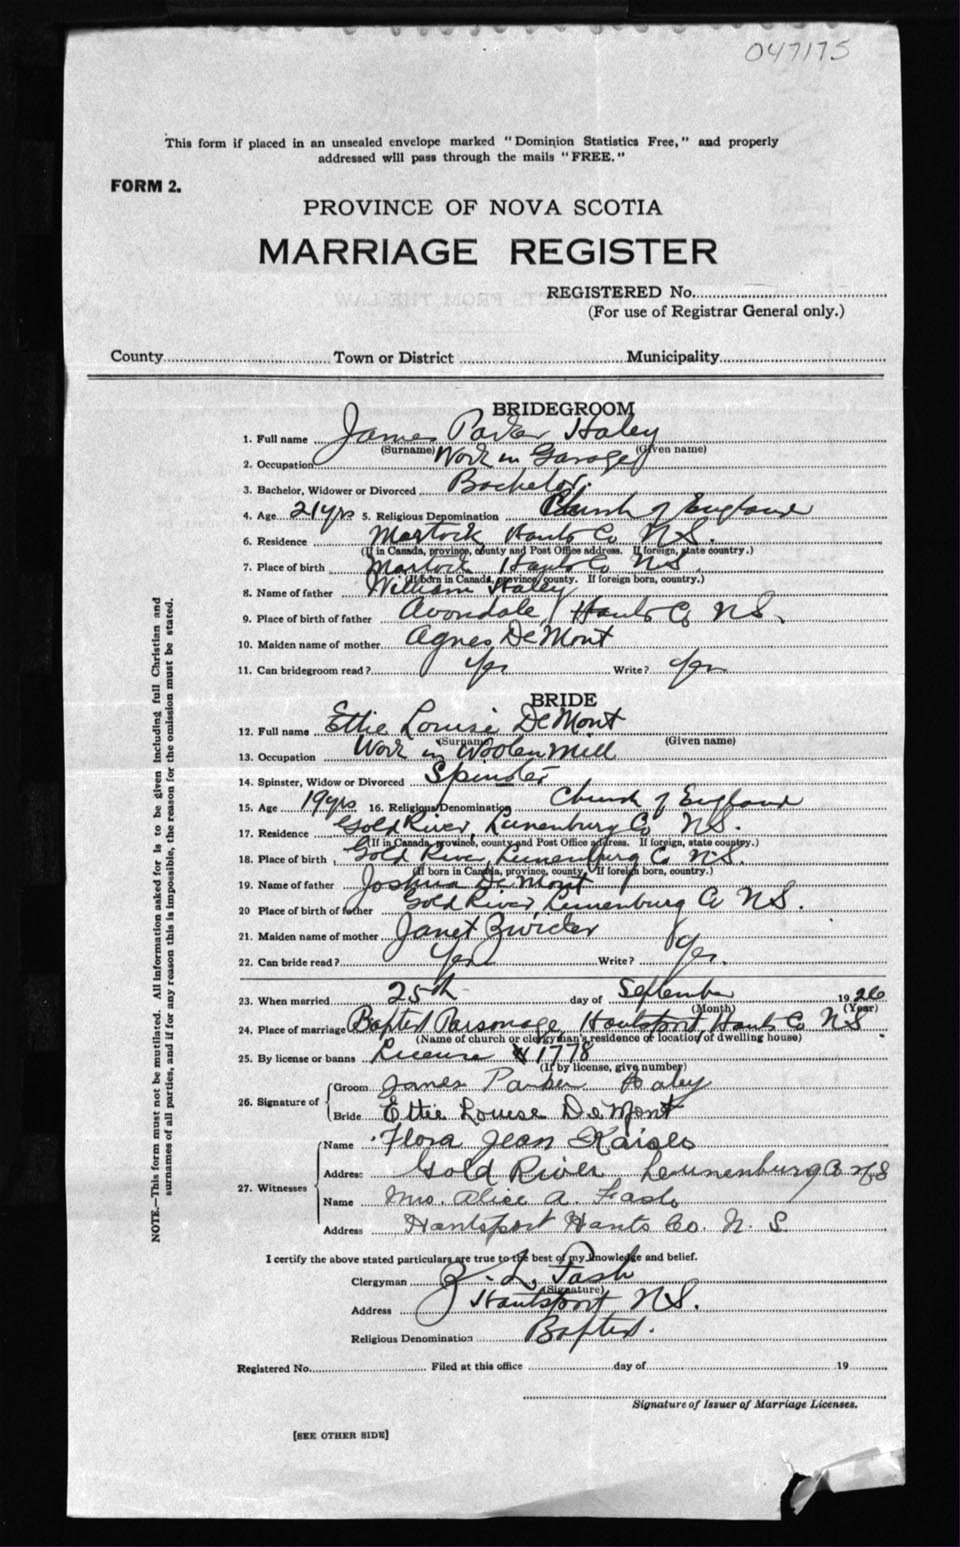 047175
This form if placed in an unsealed envelope marked "Dominion Statistics Free," and properly
addressed will pass through the mails "FREE."
FORM 2.
PROVINCE OF NOVA SCOTIA
MARRIAGE REGISTER
REGISTERED No.
(For use of Registrar General only.)
County Town or District Municipality
BRIDEGROOM
1. Full name James Parker Haley
(Surname) (Given name)
2. Occupation Work in Garage
3. Bachelor, Widower or Divorced Bachelor.
4. Age 21 yrs 5. Religious Denomination Church of England
6. Residence Martock Hants Co N.S.
(If in Canada, province, county and Post Office address. If foreign, state country.)
7. Place of birth Martock Hants Co N.S.
(If born in Canada, province, county. If foreign born, country.)
8. Name of father William Haley
9. Place of birth of father Avondale, Hants Co N.S.
10. Maiden name of mother Agnes DeMont
11. Can bridegroom read? Yes Write? Yes
BRIDE
12. Full name Ettie Louise DeMont
(Surname) (Given name)
13. Occupation Work in Woolen Mill
14. Spinster, Widow or Divorced Spinster
15. Age 19 yrs 16. Religious Denomination Church of England
17. Residence Gold River, Lunenburg Co N.S.
(If in Canada, province, county and Post Office address. If foreign, state country.)
18. Place of birth Gold River, Lunenburg Co N.S.
(If born in Canada, province, county. If foreign born, country.)
19. Name of father Joshua DeMont
20 Place of birth of father Gold River, Lunenburg Co N.S.
21. Maiden name of mother Janet Zwicker
22. Can bride read? Yes Write? Yes.
23. When married 25th day of September 1926
(Month) (Year)
24. Place of marriage Baptist Parsonage, Hantsport, Hants Co N.S
(Name of church or clergyman's residence or location of dwelling house)
25. By license or banns License # 1778
(If by license, give number)
26. Signature of
Groom James Parker Haley
Bride Ettie Louise DeMont
27. Witnesses
Name Flora Jean
Address Gold River Lunenburg Co N.S
Name Mrs. Alice A. Tash
Address Hantsport Hants Co. N. S.
I certify the above stated particulars are true to the best of my knowledge and belief.
Clergyman L. Tash
(Signature)
Address Hantsport N.S.
Religious Denomination Baptist.
Registered No. Filed at this office day of 19
Signature of Issuer of Marriage Licenses.
[SEE OTHER SIDE]
NOTE.—This form must not be mutilated. All information asked for is to be given including full Christian and
surnames of all parties, and if for any reason this is impossible, the reason for the omission must be stated.